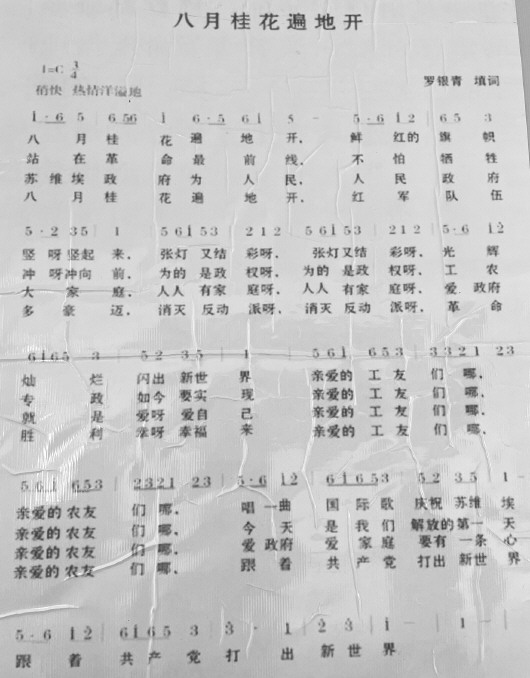 八月桂花遍地开
1=C 3/4
稍快 热情洋溢地
罗银青 填词
1·6 5 6 56 1 6·5 61 5 - 5·6 12 6 5 3
八 月 桂 花 遍 地 开, 鲜 红的 旗 帜
站 在 革 命 最 前 线, 不 怕 牺 牲
苏 维 埃 政 府 为 人 民, 人 民 政 府
八 月 桂 花 遍 地 开, 红 军 队 伍
5·2 35 1 56 1 53 2 1 2 56 1 53 2 1 2 5·6 12
竖 呀 竖起 来, 张灯 又结 彩呀, 张灯 又结 彩呀, 光 辉
冲 呀 冲向 前, 为的 是政 权呀, 为的 是政 权呀, 工 农
大 家 庭, 人人 有家 庭呀, 人人 有家 庭呀, 爱 政府
多 豪 迈, 消灭 反动 派呀, 消灭 反动 派呀, 革 命
6165 3 52 35 1 561 653 3321 23
灿 烂 闪出 新世 界 亲爱的 工友 们 哪,
专 政 如今 要实 现 亲爱的 工友 们 哪,
就 是 爱呀 爱自 己 亲爱的 工友 们 哪,
胜 利 呀 幸福 来 亲爱的 工友 们 哪,
561 653 2321 23 5·6 12 6165 3 52 35 1 -
亲爱的 农友 们 哪, 唱 一曲 国 际 歌 庆祝 苏维 埃
亲爱的 农友 们 哪, 今 天 是 我 们 解放的 第一 天
亲爱的 农友 们 哪, 爱 政府 爱 家 庭 要有 一条 心
亲爱的 农友 们 哪, 跟 着 共 产 党 打出 新世 界
5·6 12 6165 3 3· 1 2 3 1 - 1
跟 着 共 产 党 打 出 新 世 界